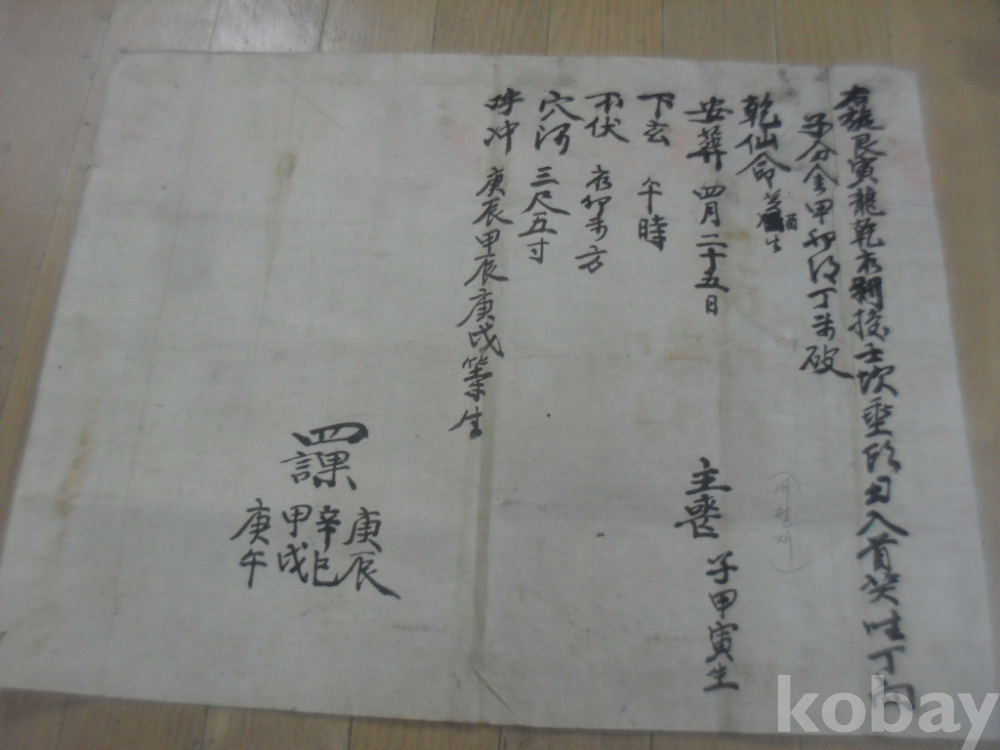 右旋艮寅龍乾亥剝換壬坎垂頭 入首癸坐丁向
子分金甲卯得丁未破
乾仙命 酉生
安葬 四月二十五日
主喪 子甲寅生
下玄 午時
不伏 亥卯未方
穴深 三尺五寸
呼冲 庚辰甲辰庚戌等生
四課
庚辰
辛巳
甲戌
庚午
kobay